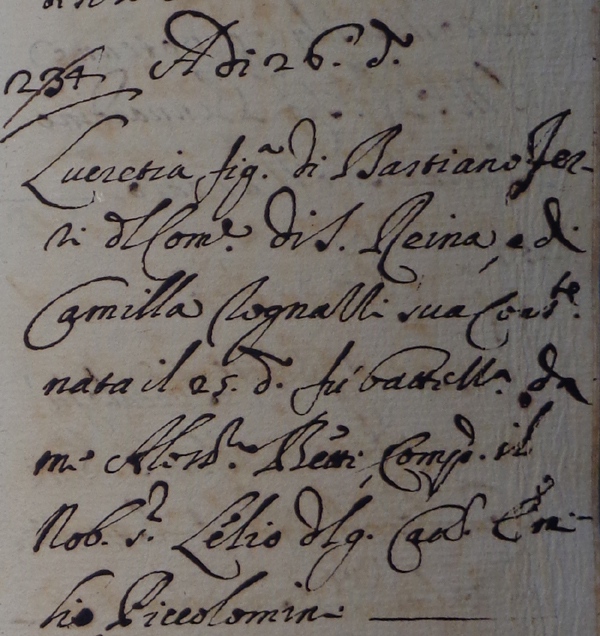 234 A di 26. d.
Lucretia fig.a di Bastiano Fer-
ri dl Com.e di S. Reina, e di
Camilla Cognatti sua Cons.te
nata il 25. d. fù battezz.a da
me Aless.o Betti, Comp.e il
Nob. s.r Lelio dl q. Cav. Emi-
lio Piccolomini